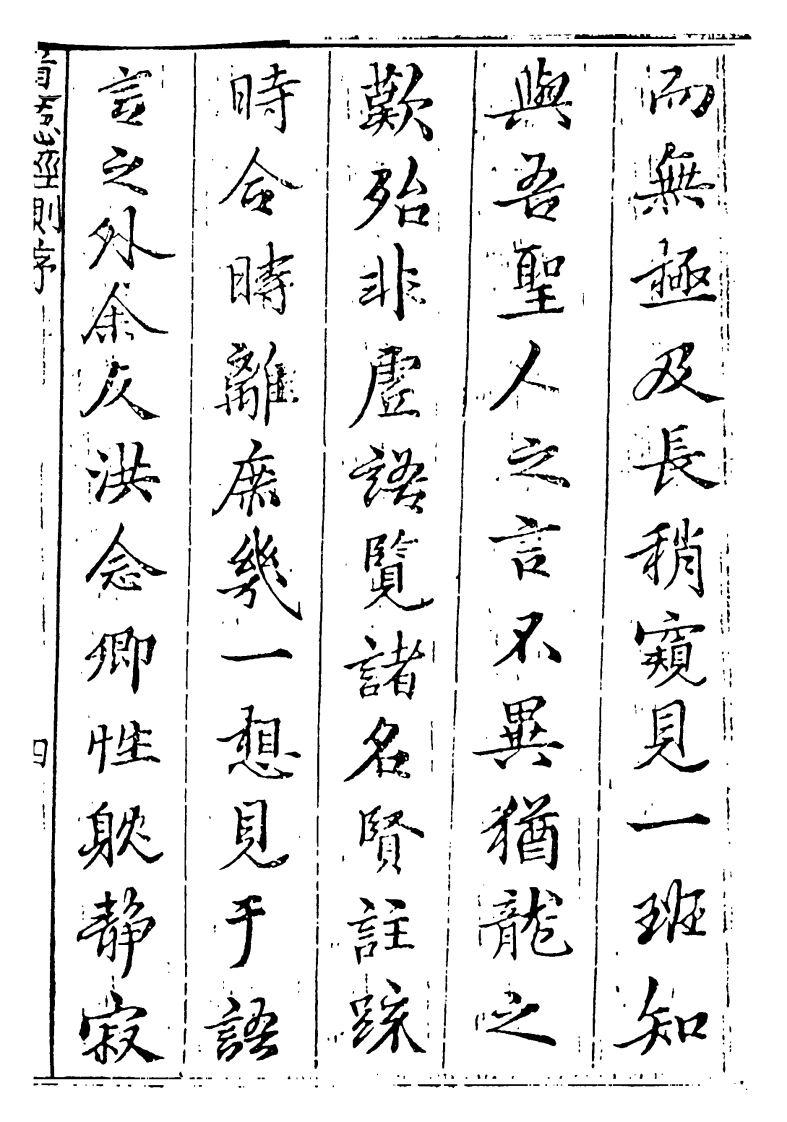 而無極及長稍窺見一班知
與吾聖人之言不異猶龍之
歎殆非虛語覽諸名賢註疏
時合時離庶幾一想見于語
言之外余友洪念卿性躭静寂
道德經測序
四